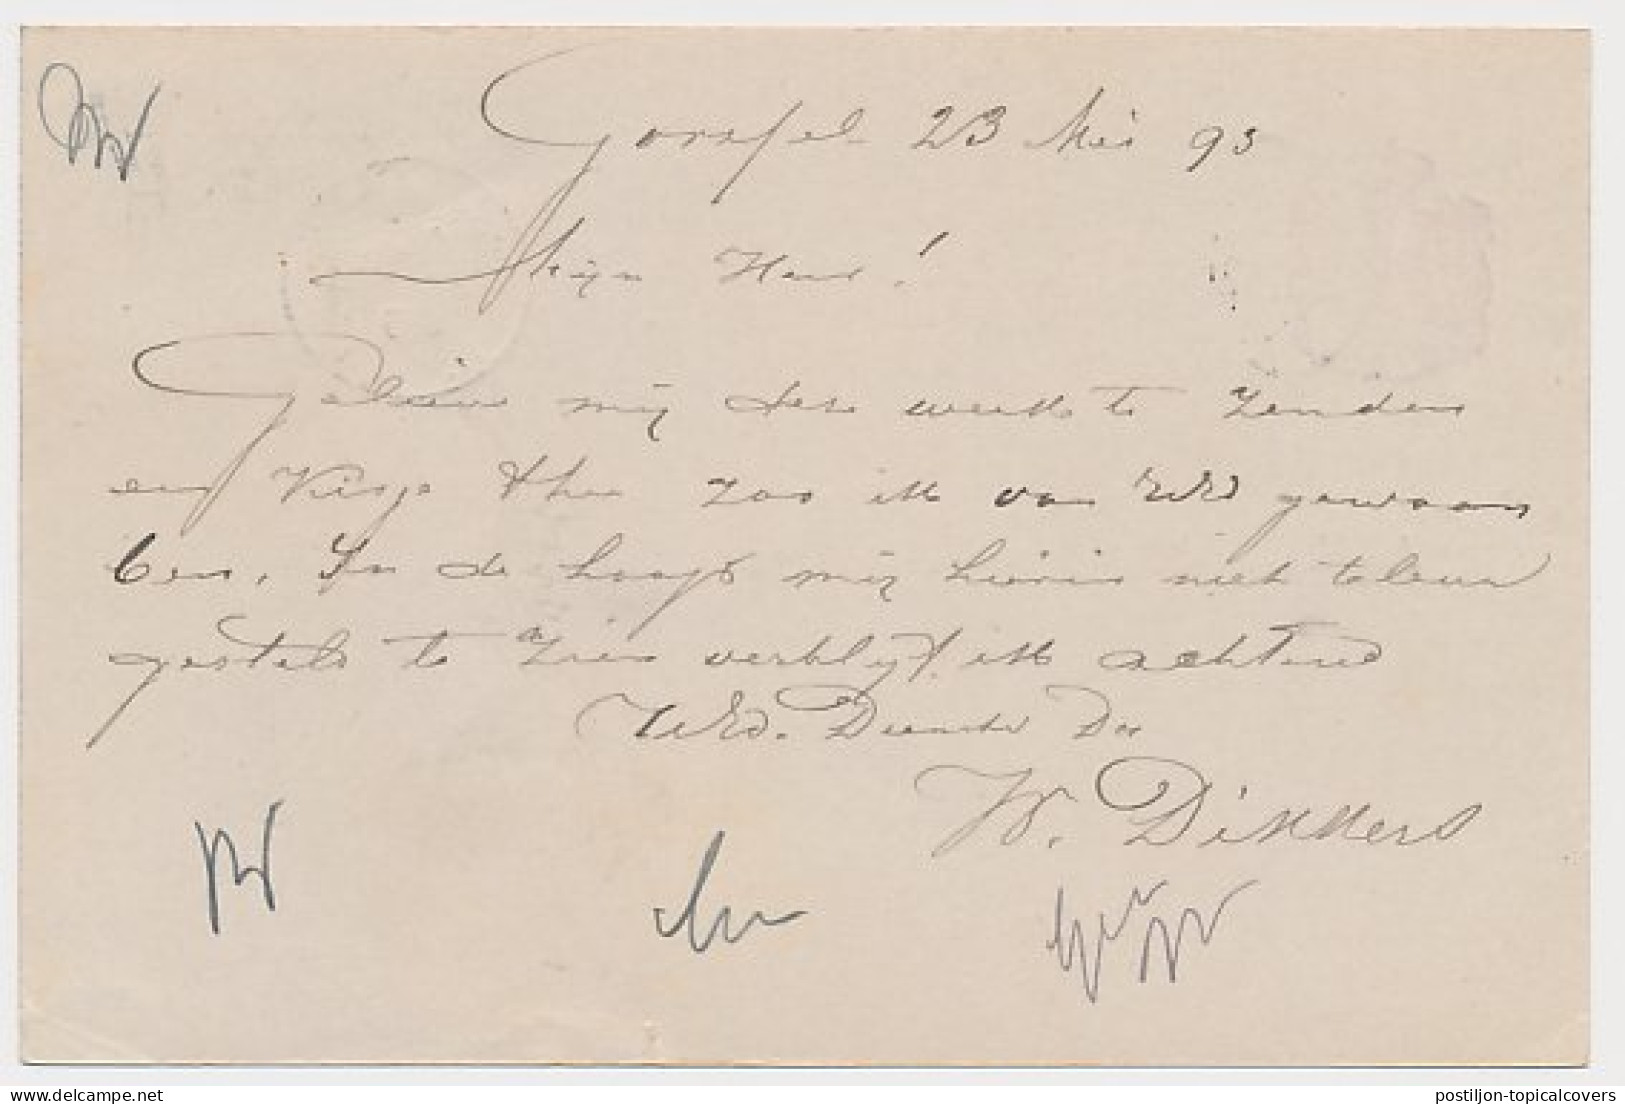 Gorssel 23 Mei 93
Mijn Heer!
Gelieve mij deze week te zenden
een Kisje thee zoo ik van UEd gewoon
ben. In de hoop mij hierin niet teleur
gesteld te zien verblijf ik achtend
UEd. Dienstw Dr
W. Dikkers
postiljon-topicalcovers